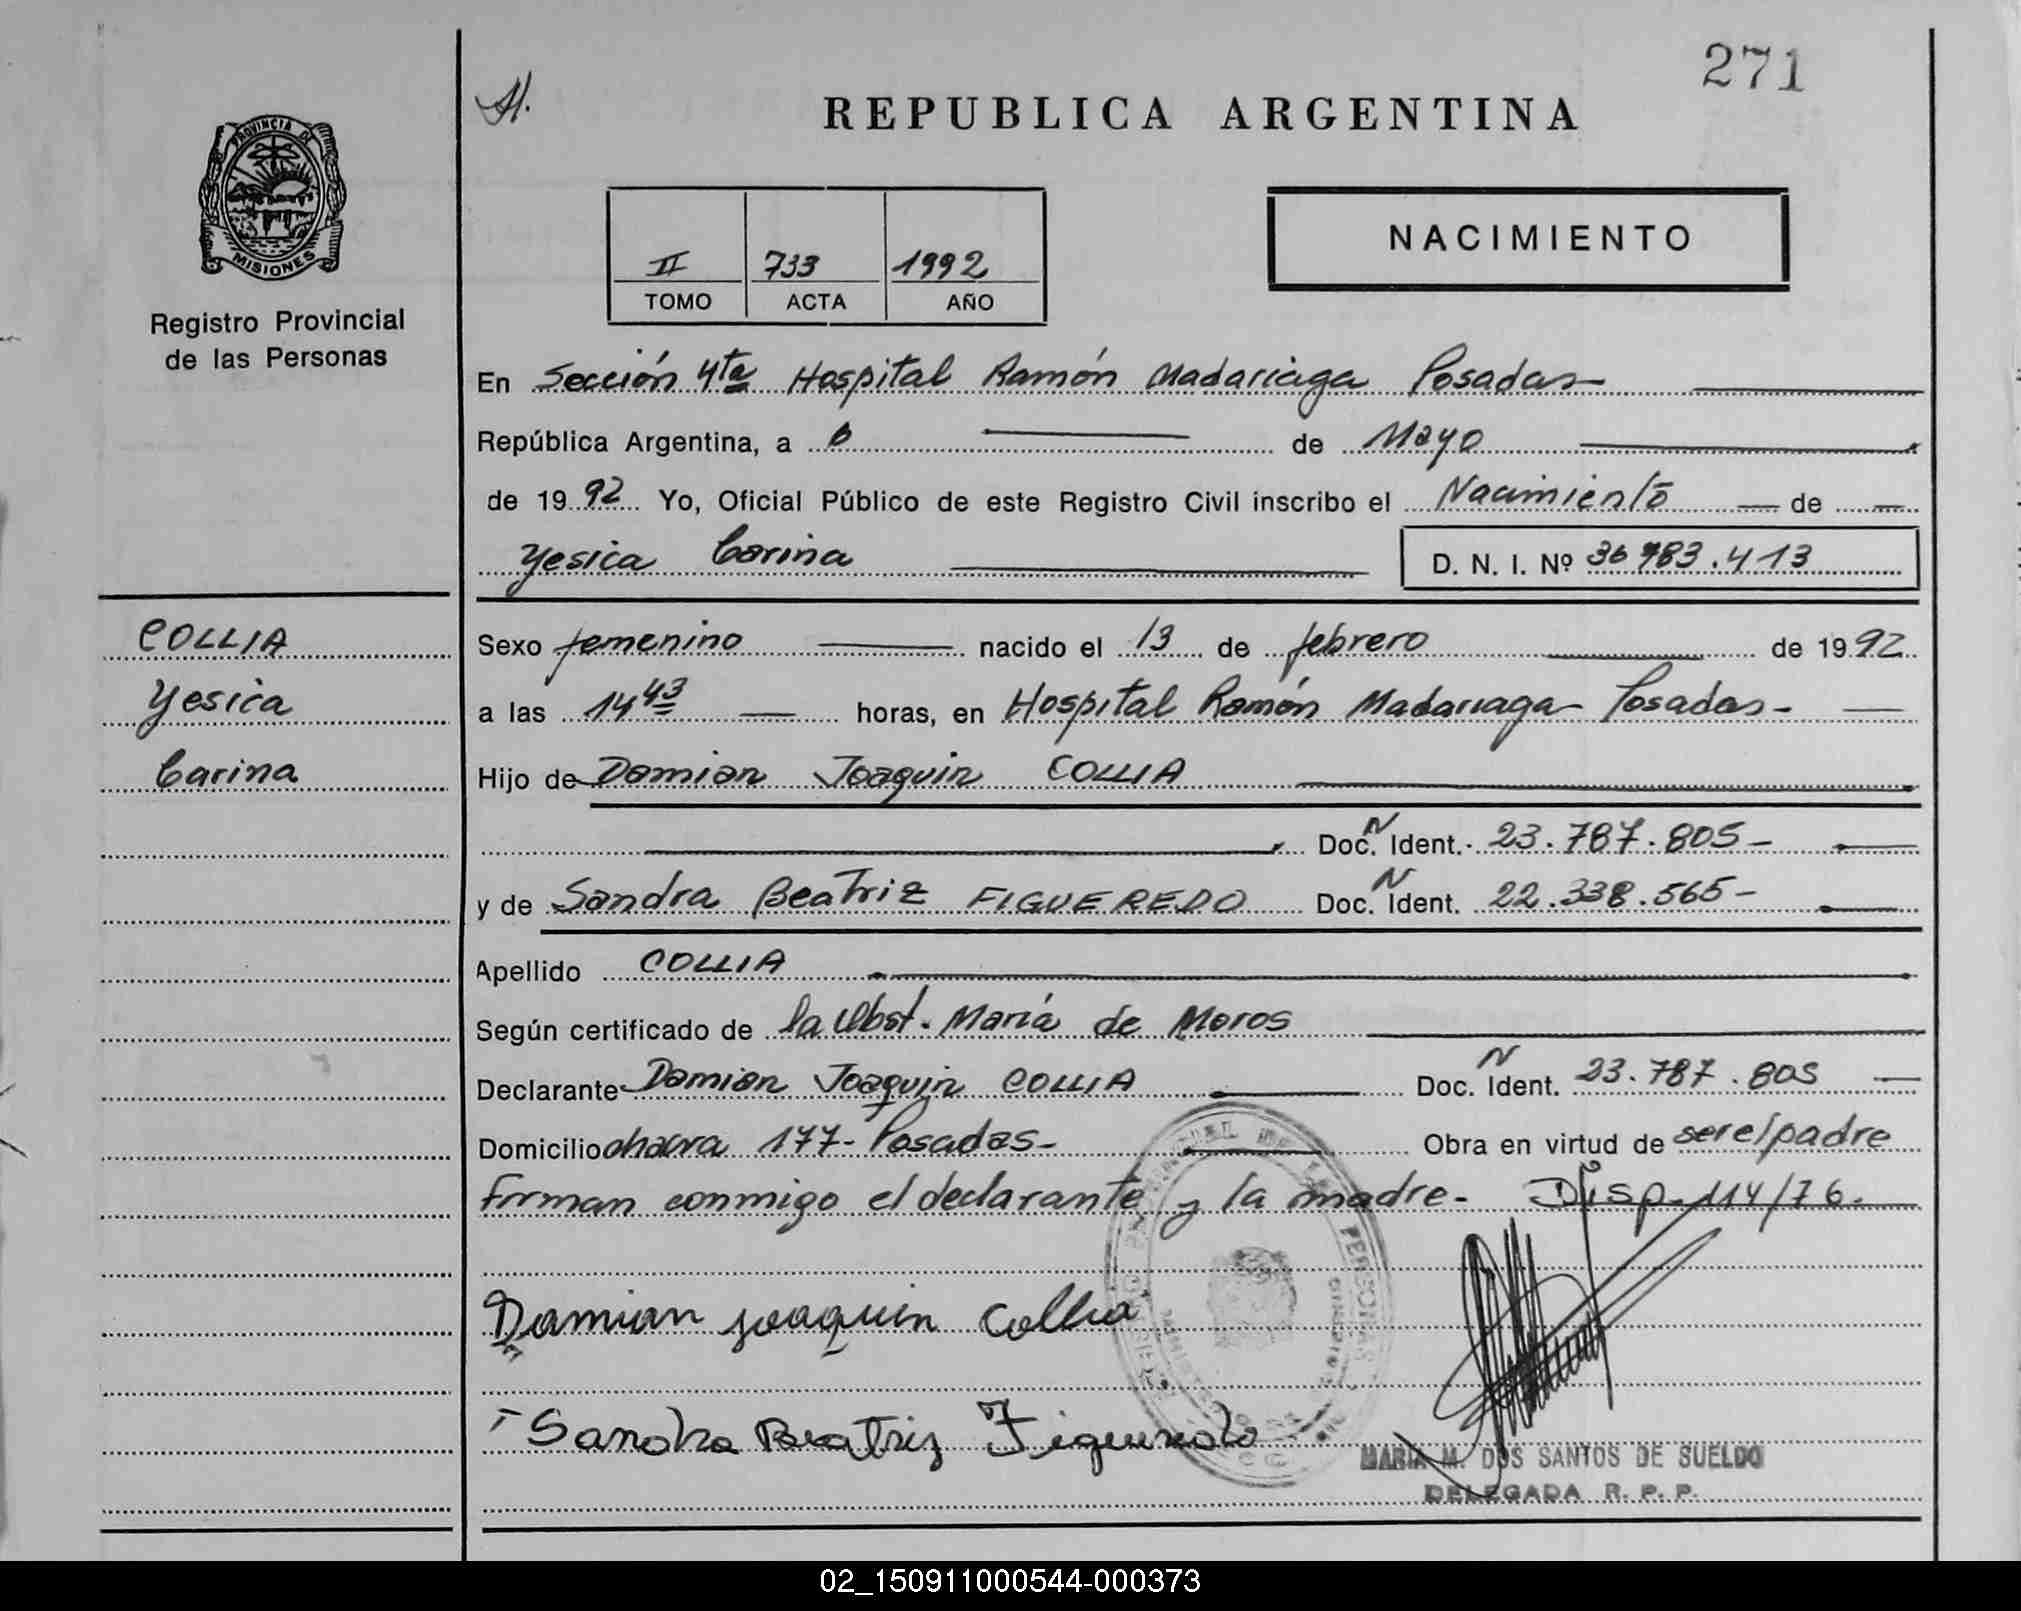 271
REPUBLICA ARGENTINA
PROVINCIA DE
MISIONES
Registro Provincial
de las Personas
NACIMIENTO
II 733 1992
TOMO ACTA AÑO
En Sección 4ta Hospital Ramón Madariaga Posadas
República Argentina, a 6 de Mayo
de 1992 Yo, Oficial Público de este Registro Civil inscribo el Nacimiento de
Yesica Carina D. N. I. Nº 36 783.413
COLLIA
Yesica
Carina
Sexo femenino nacido el 13 de febrero de 1992
a las 14 43 horas, en Hospital Ramón Madariaga Posadas-
Hijo de Damian Joaquin COLLIA
Doc. N Ident. 23.787.805-
y de Sandra Beatriz FIGUEREDO Doc. N Ident. 22.338.565-
Apellido COLLIA
Según certificado de la Obst. María de Moros
Declarante Damian Joaquin COLLIA Doc. N Ident. 23.787.805
Domicilio chacra 177- Posadas- Obra en virtud de ser el padre
Firman conmigo el declarante y la madre- Disp. 114/76.
Damian Joaquin Collia
Sandra Beatriz Figueredo
MARIA M. DOS SANTOS DE SUELDO
DELEGADA R. P. P.
02_150911000544-000373